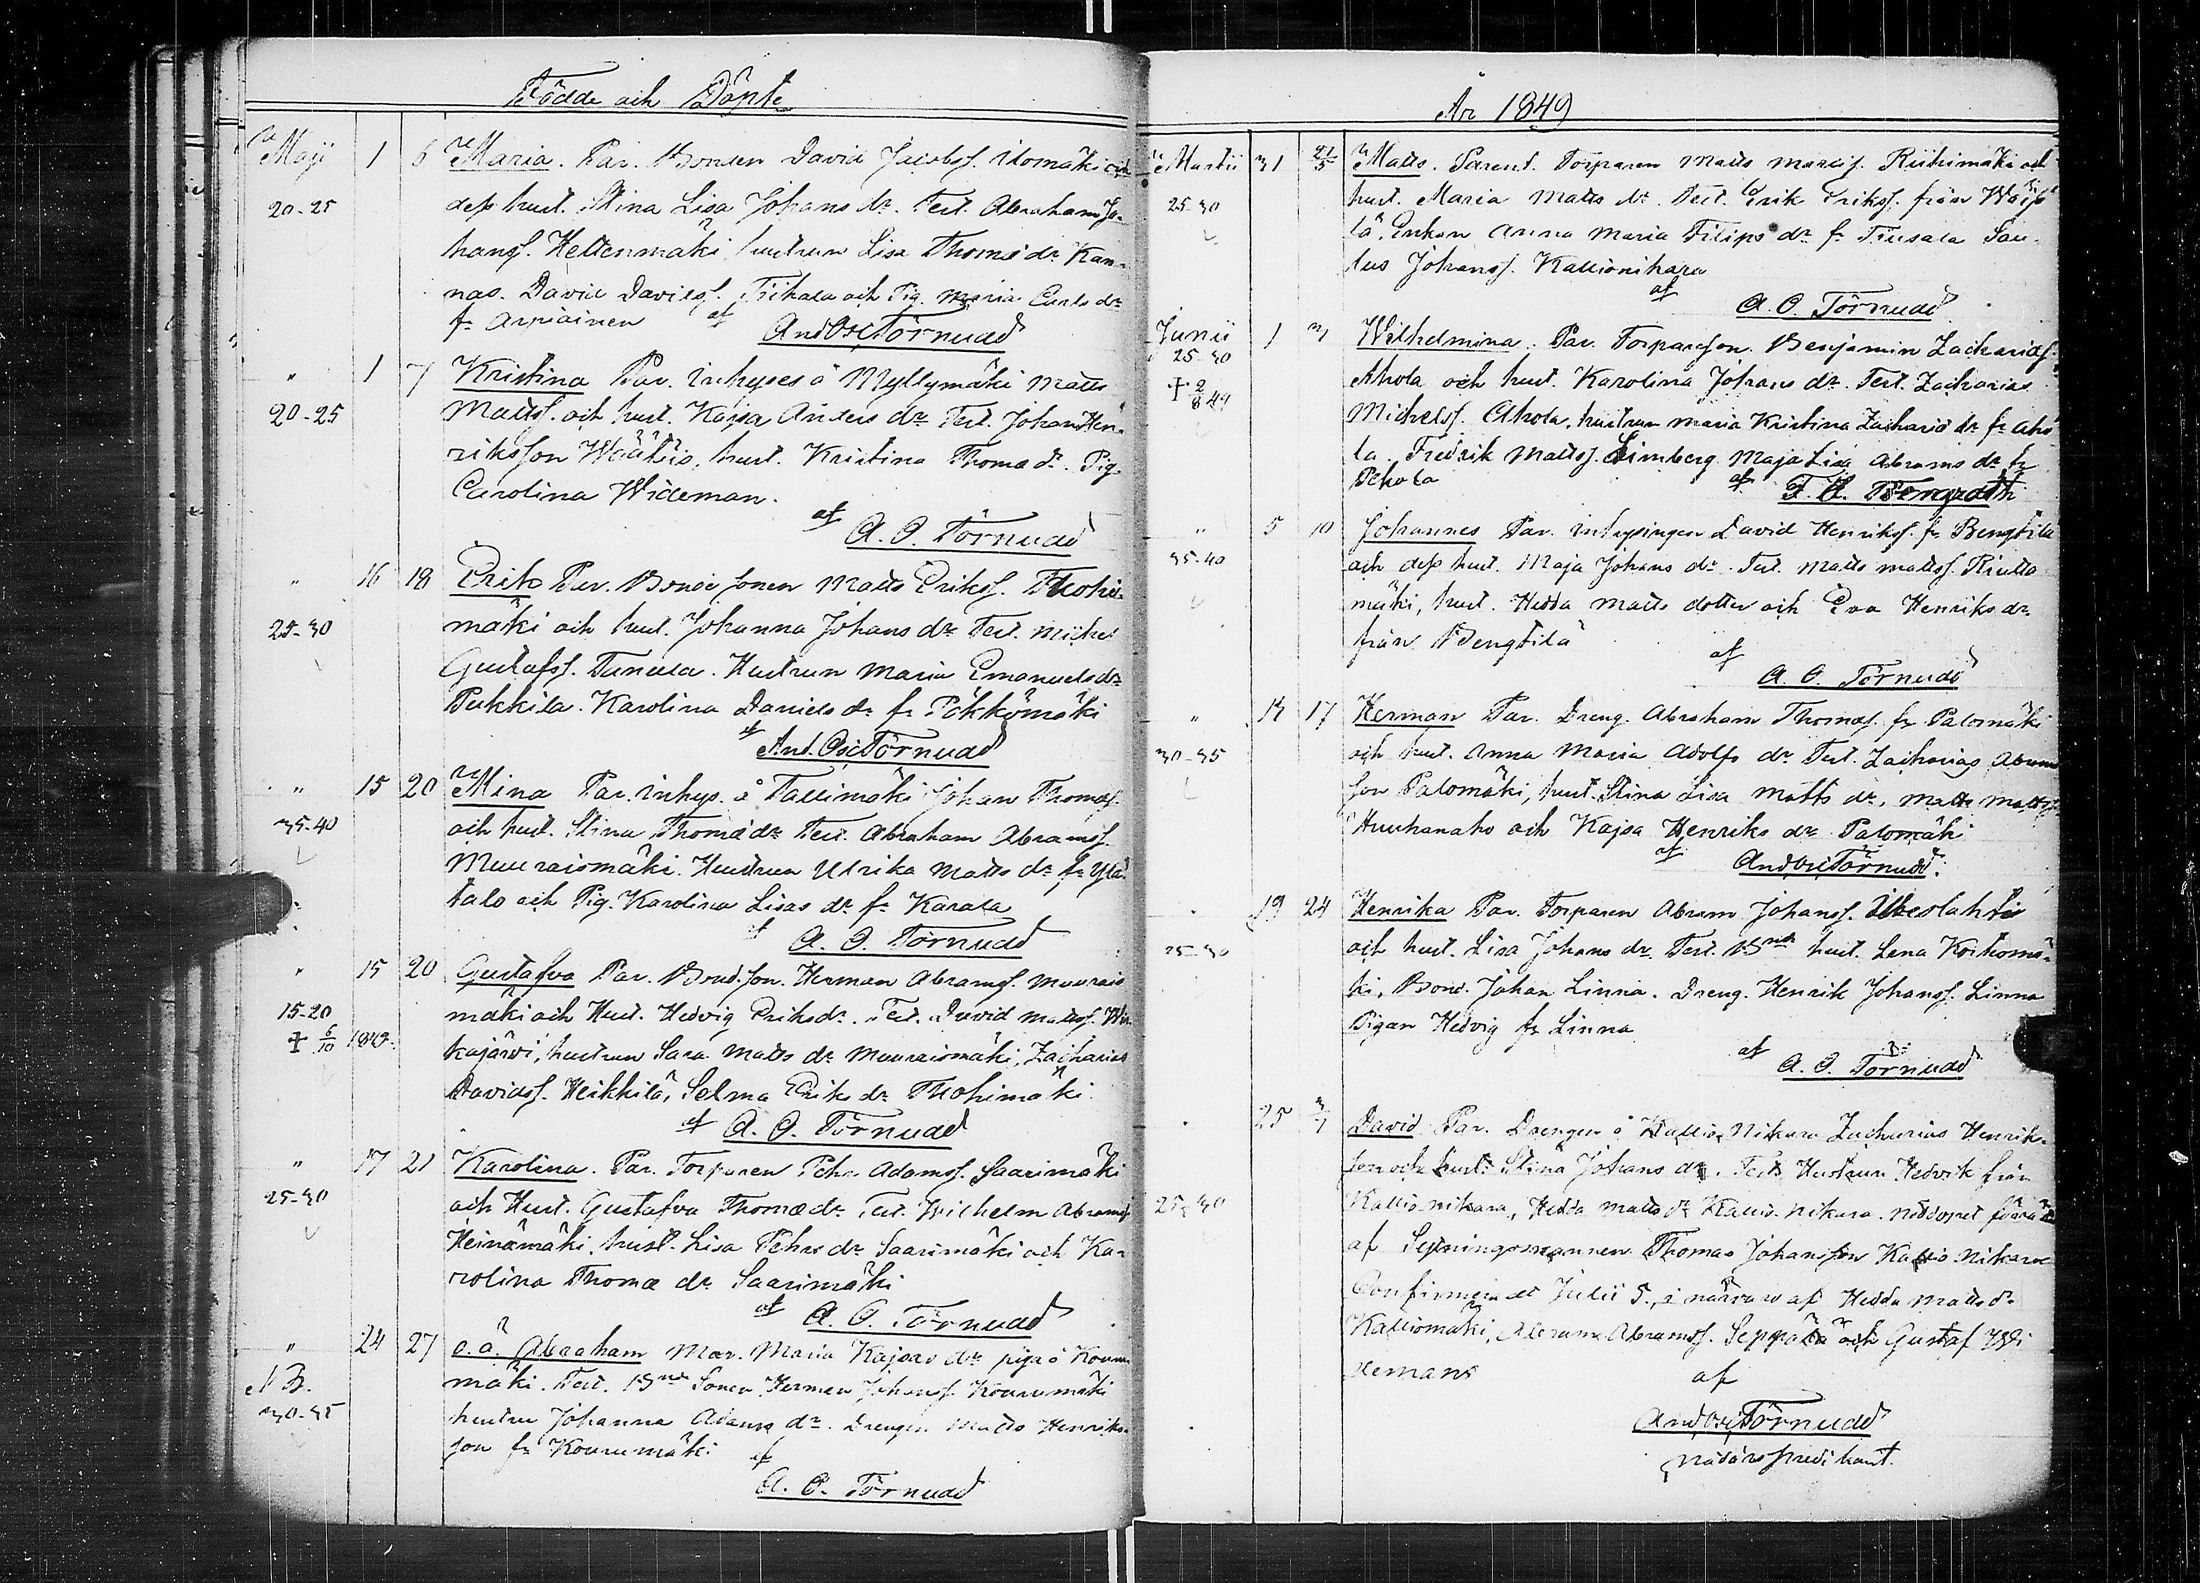 Födde och Döpte
Maji 1 6 Maria. Par. Bonden David Jacobss. Uomäki och
20-25 dess hust. Stina Lisa Johans dr. Test. Abraham Jo-
hanss. Hettenmäki, hustrun Lisa Thomæ dr Kan-
nas. David Davidss. och Pig. Maria Carls dr
fr. Arpiainen af And Osc Törnudd
" 1 7 Kristina Par. Inhyses å Myllymäki Matts
20-25 Mattss. och hust. Kajsa Anders dr Test. Johan Hen-
riksson Wäätäis, hust. Kristina Thomæ dr. Pig.
Carolina Wideman.
af A. O. Törnudd
" 16 18 Erik Par. Bonde sonen Matts Erikss. Thohi-
25-30 mäki och hust. Johanna Johans dr Test. Michel
Gustafss. Hustrun Maria Emanuels dr
Pukkila. Karolina Daniels dr fr Pökkömäki
af And. Osc Törnudd
" 15 20 Mina Par. inhys. å Tallimäki Johan Thomæs.
35-40 och hust. Stina Thomæ dr Test. Abraham Abramss.
Muuraismäki. Hustrun Ulrika Matts dr fr Ylä-
talo och Pig. Karolina Lisas dr fr Karala
af A. O. Törnudd
" 15 20 Gustafva Par. Bond.son. Herman Abramss. Muurais
15-20 mäki och Hust. Hedvig Eriks dr. Test. David Mattss. Wis-
+ 6/10 1849. kajärvi, hustrun Sara Matts dr Muuraismäki, Zacharias
Davidss. Heikkilä, Selma Eriks dr Thohimäki
af A. O. Törnudd
" 17 21 Karolina. Par. Torparen Pehr Adamss. Saarimäki
25-30 och Hust. Gustafva Thomæ dr Test. Wilhelm Abramss
Heinämäki, hust. Lisa Pehrs dr Saarimäki och Ka-
rolina Thomæ dr Saarimäki
af A. O. Törnudd
" 24 27 o.ä. Abraham Mor. Maria Kajsas dr piga å Kouru
N B. mäki. Test. Bnde Sonen Herman Johanss. Kourumäki
30-35 hustru Johanna Adams dr. Drengen Matts Henriks-
son fr Kourumäki af
A. O. Törnudd
År 1849
Martii 31 21/5 Matts. Parent. Torparen Matts Mattss. Riihimäki och
25-30 hust. Maria Matts dr. Test. Erik Erikss. från
lä, Enkan Anna Maria Filips dr fr Tiusala Sau-
lus Johanss. Kallionikara
af A. O. Törnudd
Junii 1 3 Wilhelmina. Par. Torparson. Benjamin Zachariæs.
25-30 Ahola och hust. Karolina Johans dr. Test. Zacharias
+ 2/8 49 Michelss. Ahola, hustrun Maria Kristina Zachariæ dr fr Aho
la. Fredrik Mattss. Limberg Maja Lisa Abrams dr fr
Pehola af
" 5 10 Johannes Par. inhysingen David Henrikss. fr Bengtilä
35-40 och dess hust. Maja Johans dr. Test. Matts Mattss.
mäki, hust. Hedda Matts dotter och Eva Henriks dr
från Bengtilä
af A. O. Törnudd
" 14 17 Herman Par. Dreng. Abraham Thomæs. fr Palomäki
30-35 och hust. Anna Maria Adolfs dr Test. Zacharias Abram
son Palomäki, hust. Stina Lisa Matts dr, Matts Mattss
Huuhanaho och Kajsa Henriks dr Palomäki
af And Osc Törnudd.
19 24 Henrika Par. Torparen Abram Johanss. Ilkeslahti
25-30 och hust. Lisa Johans dr Test. Bnde hust. Lena Koskomä-
ki, Bond. Johan Linna. Dreng. Henrik Johanss. Linna
Pigan Hedvig fr Linna
af A. O. Törnudd
25 3/7 David Par. Drengen å Kallio Nikara Zacharias Henrik-
son och hust. Stina Johans dr. Test. Hustrun Hedvik från
25-30 Kallio nikara, Hedda Matts dr Kallio nikara. Nöddopet förrä
af Sexningsmannen Thomas Johansson Kallio Nikara
Confirmerat Julii 5, i närvaro af Hedda Matts dr
Kalliomäki, Abram Abramss. Seppälä och Gustaf Wi
demans af
And Osc Törnudd
nådårspredikant.